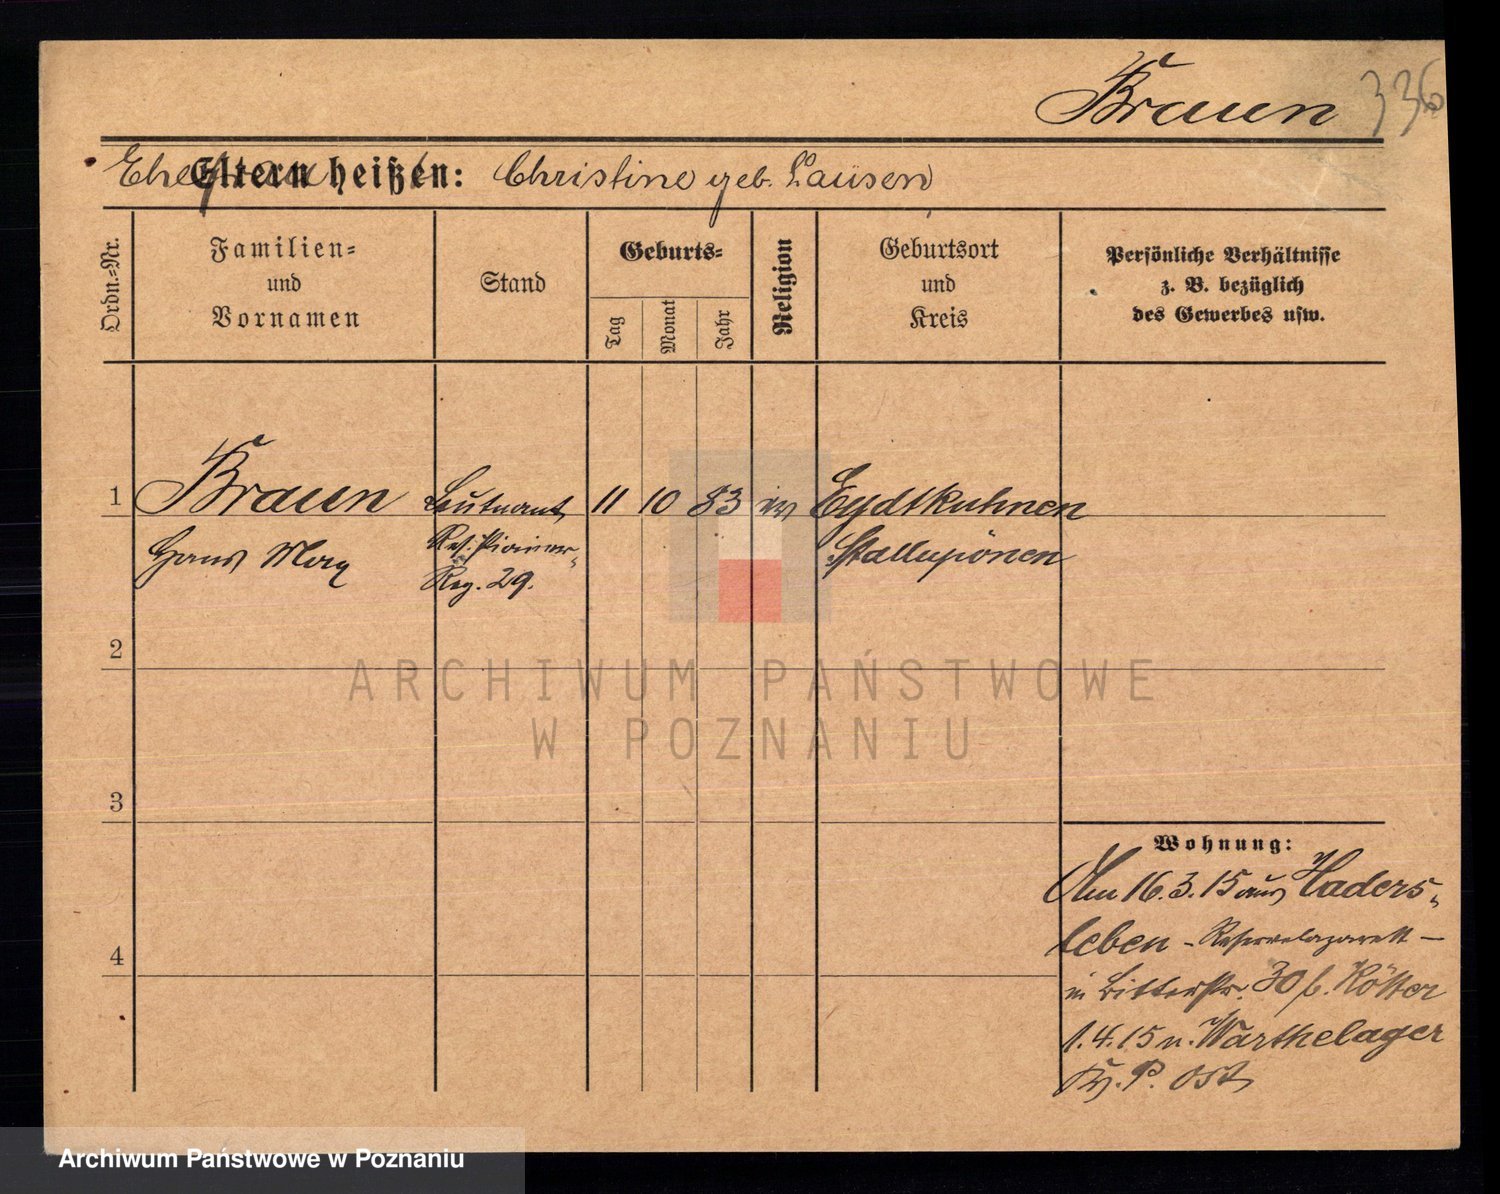 Braun 336
Ehefrau Eltern heißen: Christine geb. Lausen
Ordn.=Nr.
Familien=
und
Vornamen
Stand
Geburts=
Tag
Monat
Jahr
Religion
Geburtsort
und
Kreis
Persönliche Verhältnisse
z. B. bezüglich
des Gewerbes usw.
1 Braun Leutnant 11 10 83 ev Eydtkuhnen
Hans Max Res. Pionier- Stallupönen
Reg. 29.
2
3
4
Wohnung:
Am 16.3.15 aus Haders-
leben - Reservelazarett -
in Ritterstr. 30 b. Kötter
1.4.15 n. Warthelager
Kr. P. Ost
ARCHIWUM PAŃSTWOWE
W POZNANIU
Archiwum Państwowe w Poznaniu